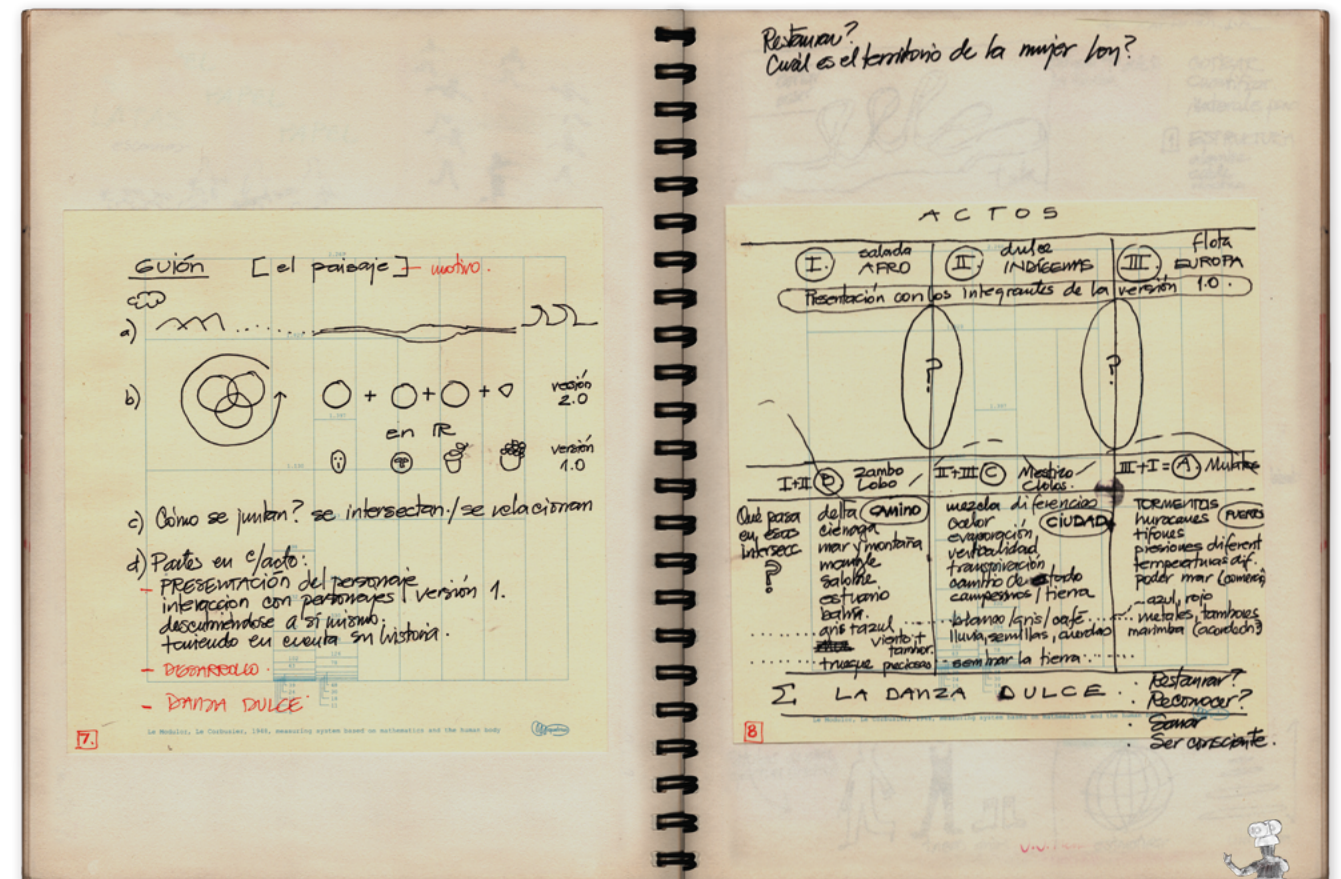 GUIÓN [el paisaje] — motivo.
a)
b)
+ + + versión 2.0
en IR
versión 1.0
c) Cómo se juntan? se intersectan / se relacionan
d) Partes en c/acto:
- PRESENTACIÓN del personaje
interacción con personajes versión 1.
descubriéndose a sí mismo.
teniendo en cuenta su historia.
- DESARROLLO.
- DANZA DULCE
7.
Le Modulor, Le Corbusier, 1946, measuring system based on mathematics and the human body
Restaurar?
Cuál es el territorio de la mujer hoy?
ACTOS
I. salada AFRO
II. dulce INDÍGENAS
III. flota EUROPA
Presentación con los integrantes de la versión 1.0.
?
?
I+II Zambo Lobo /
II+III C Mestizo / Cholos.
III+I = A. Mulatos
Qué pasa
en esas
intersecc
?
delta CAMINO
ciénaga
mar y montaña
manglar
salobre
estuario
bahía.
gris + azul
viento +
tambor.
trueque preciosas
mezcla diferencias
calor CIUDAD
evaporación
verticalidad
transpiración
cambio de estado
campesinos / tierra
blanco / gris / café
lluvia, semillas, cuerdas
sembrar la tierra
TORMENTAS
huracanes PUERTO
tifones
presiones diferent
temperaturas dif.
poder mar (comercio)
azul, rojo
metales, tambores
marimba (acordeón?)
Σ LA DANZA DULCE
· Restaurar?
· Reconocer?
· Sanar
· Ser consciente.
8